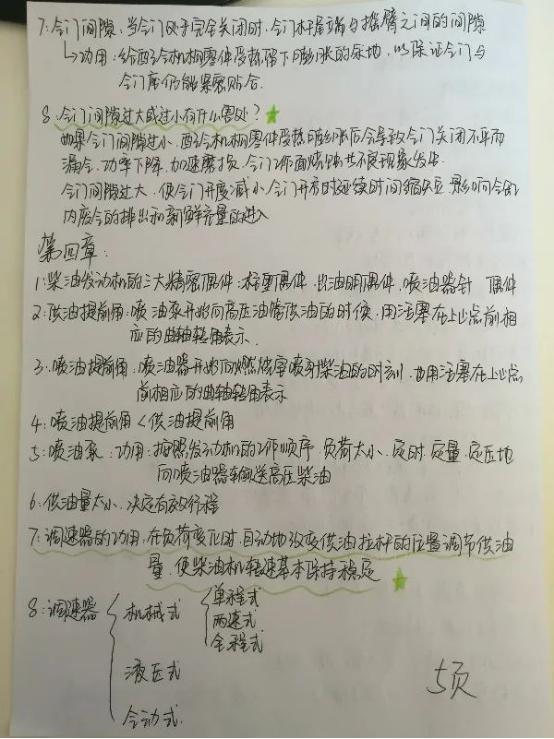 7: 仺门间隙: 当仺门处于完全关闭时, 仺门杆尾端与摇臂之间的间隙
功用: 给配仺机构零件受热留下膨胀的余地, 以保证仺门与
仺门座仍能紧密贴合.
8. 仺门间隙过大或过小有什么害处?
如果仺门间隙过小, 配仺机构零件受热膨胀后会导致仺门关闭不严而
漏仺. 功率下降, 加速磨损, 仺门工作面烧蚀等不良现象发生.
仺门间隙过大, 使仺门开度减小, 仺门开启时延续时间缩短, 影响仺缸
内废仺的排出和新鲜充量的进入
第四章:
1: 柴油发动机的三大精密偶件: 柱塞偶件、出油阀偶件、喷油器针 偶件
2: 供油提前角: 喷油泵开始向高压油管供油的时候, 用活塞在上止点前相
应的曲轴转角表示.
3: 喷油提前角: 喷油器开始向燃烧室喷射柴油的时刻, 也用活塞在上止点
前相应的曲轴转角表示
4: 喷油提前角 < 供油提前角
5: 喷油泵: 功用: 按照发动机的工作顺序. 负荷大小, 定时、定量、定压地
向喷油器输送高压柴油
6: 供油量大小, 决定有效行程
7: 调速器的功用, 在负荷变化时, 自动地改变供油拉杆的位置调节供油
量, 使柴油机转速基本保持稳定
8: 调速器
机械式
单程式
两速式
全程式
液压式
仺动式.
5页